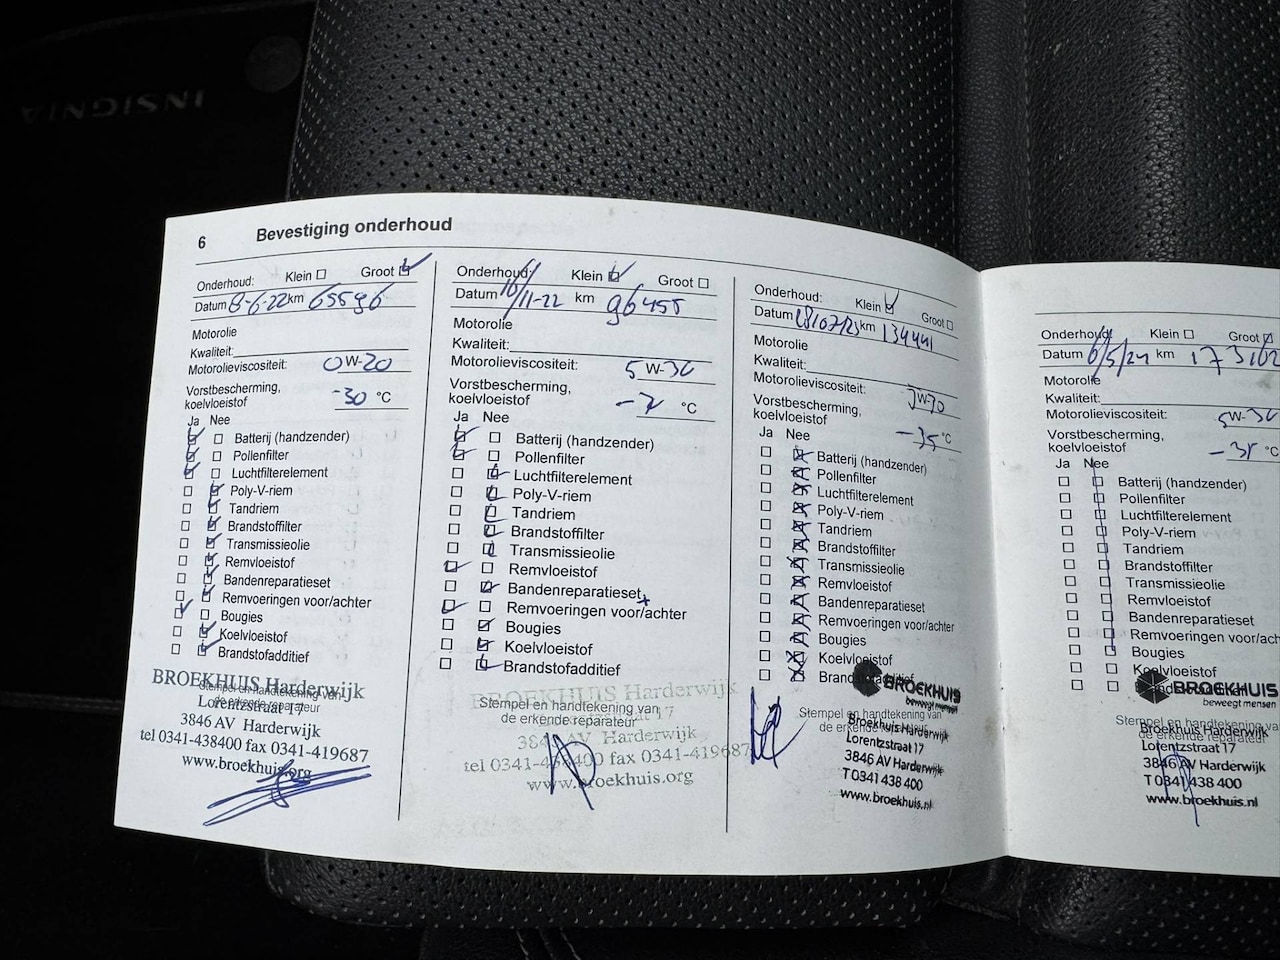 INSIGNIA
6 Bevestiging onderhoud
Onderhoud: Klein Groot
Datum 8-6-22 km 65596
Motorolie
Kwaliteit:
Motorolieviscositeit: 0W-20
Vorstbescherming,
koelvloeistof -30 °C
Ja Nee
Batterij (handzender)
Pollenfilter
Luchtfilterelement
Poly-V-riem
Tandriem
Brandstoffilter
Transmissieolie
Remvloeistof
Bandenreparatieset
Remvoeringen voor/achter
Bougies
Koelvloeistof
Brandstofadditief
BROEKHUIS Harderwijk
Stempel en handtekening van
de erkende reparateur
Lorentzstraat 17
3846 AV Harderwijk
tel 0341-438400 fax 0341-419687
www.broekhuis.org
Onderhoud: Klein Groot
Datum 16/11-22 km 96455
Motorolie
Kwaliteit:
Motorolieviscositeit: 5W-30
Vorstbescherming,
koelvloeistof °C
Ja Nee
Batterij (handzender)
Pollenfilter
Luchtfilterelement
Poly-V-riem
Tandriem
Brandstoffilter
Transmissieolie
Remvloeistof
Bandenreparatieset
Remvoeringen voor/achter
Bougies
Koelvloeistof
Brandstofadditief
BROEKHUIS Harderwijk
Stempel en handtekening van
de erkende reparateur
3846 AV Harderwijk
tel 0341-438400 fax 0341-419687
www.broekhuis.org
Onderhoud: Klein Groot
Datum 18/07/23 km 134441
Motorolie
Kwaliteit:
Motorolieviscositeit:
Vorstbescherming,
koelvloeistof -35 °C
Ja Nee
Batterij (handzender)
Pollenfilter
Luchtfilterelement
Poly-V-riem
Tandriem
Brandstoffilter
Transmissieolie
Remvloeistof
Bandenreparatieset
Remvoeringen voor/achter
Bougies
Koelvloeistof
Brandstofadditief
BROEKHUIS
beweegt mensen
Stempel en handtekening van
de erkende reparateur
Broekhuis Harderwijk
Lorentzstraat 17
3846 AV Harderwijk
T 0341 438 400
www.broekhuis.nl
Onderhoud: Klein Groot
Datum 6/5/24 km
Motorolie
Kwaliteit:
Motorolieviscositeit: 5W-30
Vorstbescherming,
koelvloeistof °C
Ja Nee
Batterij (handzender)
Pollenfilter
Luchtfilterelement
Poly-V-riem
Tandriem
Brandstoffilter
Transmissieolie
Remvloeistof
Bandenreparatieset
Remvoeringen voor/ach
Bougies
Koelvloeistof
BROEKHUIS
beweegt mensen
Stempel en handtekening van
de erkende reparateur
Broekhuis Harderwijk
Lorentzstraat 17
3846 AV Harderwijk
T 0341 438 400
www.broekhuis.nl